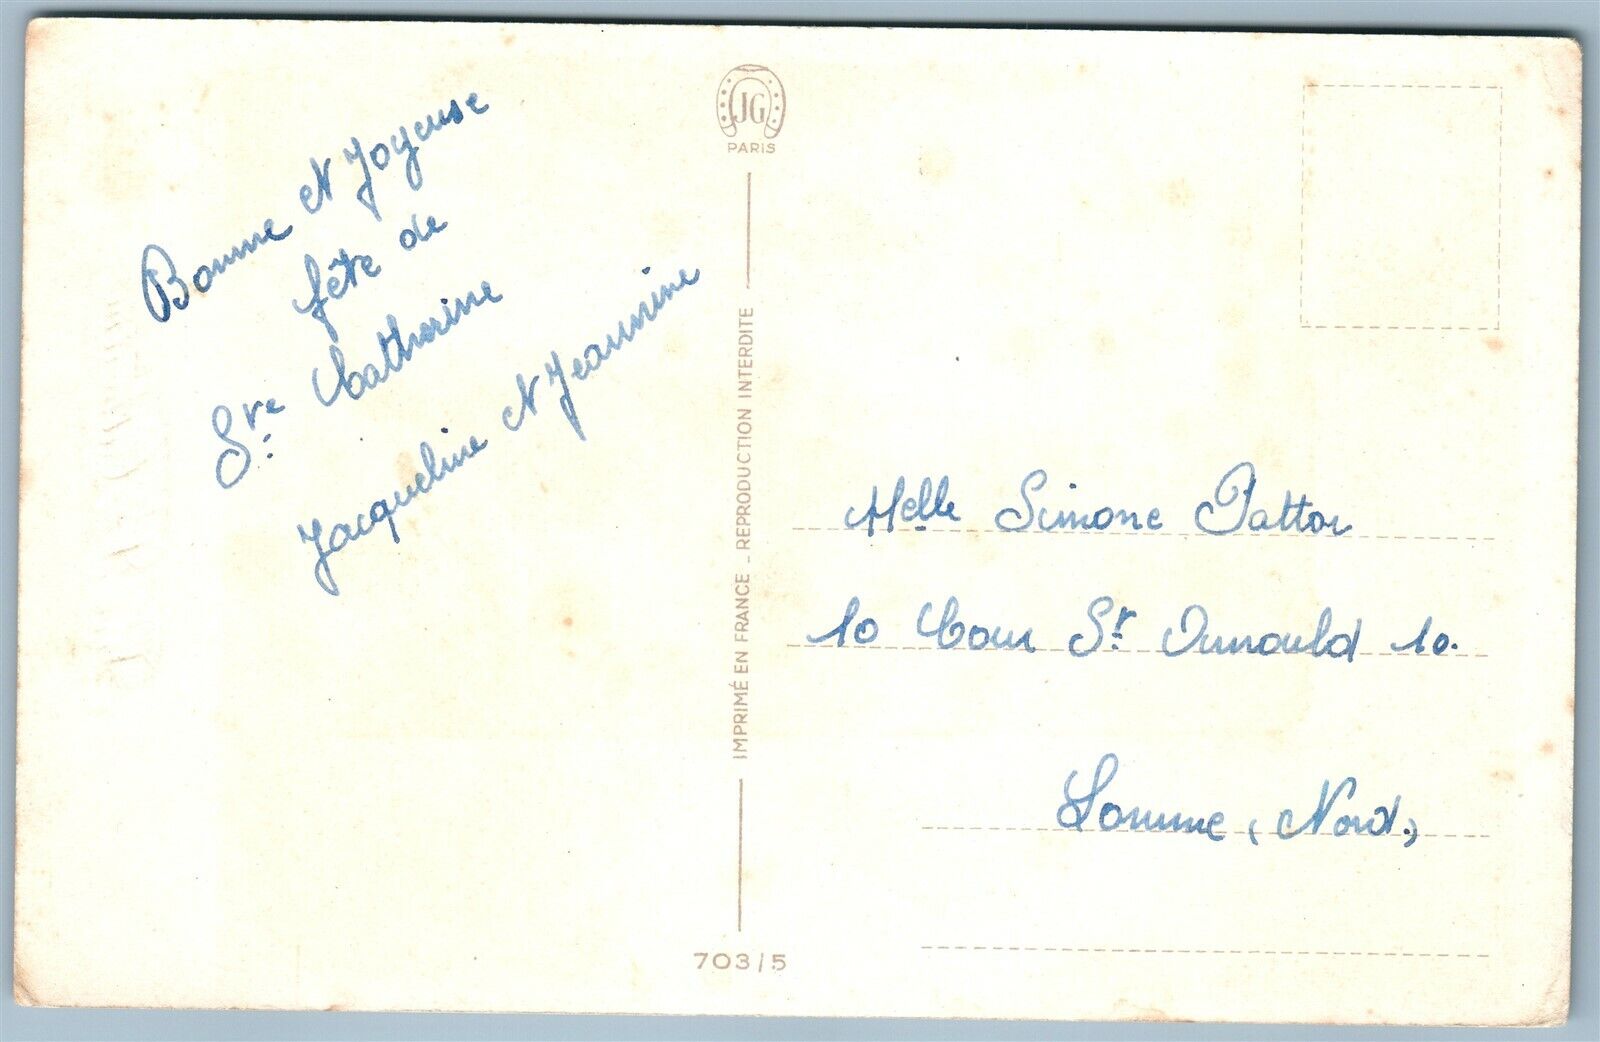 Bonne et Joyeuse
fête de
Ste Catherine
Jacqueline et Jeannine
JG
PARIS
IMPRIMÉ EN FRANCE _ REPRODUCTION INTERDITE
703/5
Melle Simone Pattou
10 Cour St Arnould 10.
Lomme (Nord)